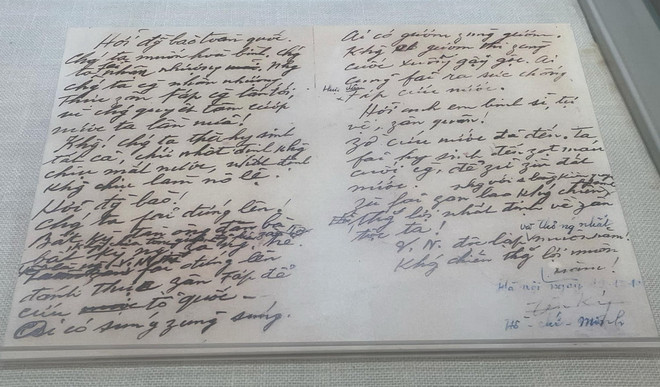 Hỡi đg bào toàn quốc.
Chg ta muốn hoà bình, chg
ta fải nhân nhượng. Nhg
chg ta cg nhân nhượng,
thực zân Fáp cg lấn tới,
vì chg quyết tâm cướp
nước ta lần nữa!
Khg! Chg ta thà hy sinh
tất cả, chứ nhất định khg
chịu mất nước, nhất định
khg chịu làm nô lệ.
Hỡi đg bào!
Chg ta fải đứng lên!
Bất kỳ đàn ông, đàn bà,
bất kỳ
fải đứng lên
đánh thực zân Fáp để
cứu tổ quốc -
Ai có súng zùng súng.
Ai có gươm zùng gươm.
Khg có gươm thì zùng
cuốc xuổng gậy gộc. Ai
cũng fải ra sức chống
Fáp cứu nước.
Hỡi anh em binh sĩ, tự
vệ, zân quân!
Zờ cứu nước đã đến. ta
fải hy sinh đến zọt máu
cuối cg, để zữ zìn đất
nước.
Zù fải zan lao khg chiến,
thg lợi nhất định về zân
tộc ta!
V.N. độc lập và thống nhất muôn năm!
Khg chiến thg lợi muôn
năm!
Hà nội ngày
Hồ-chí-Minh